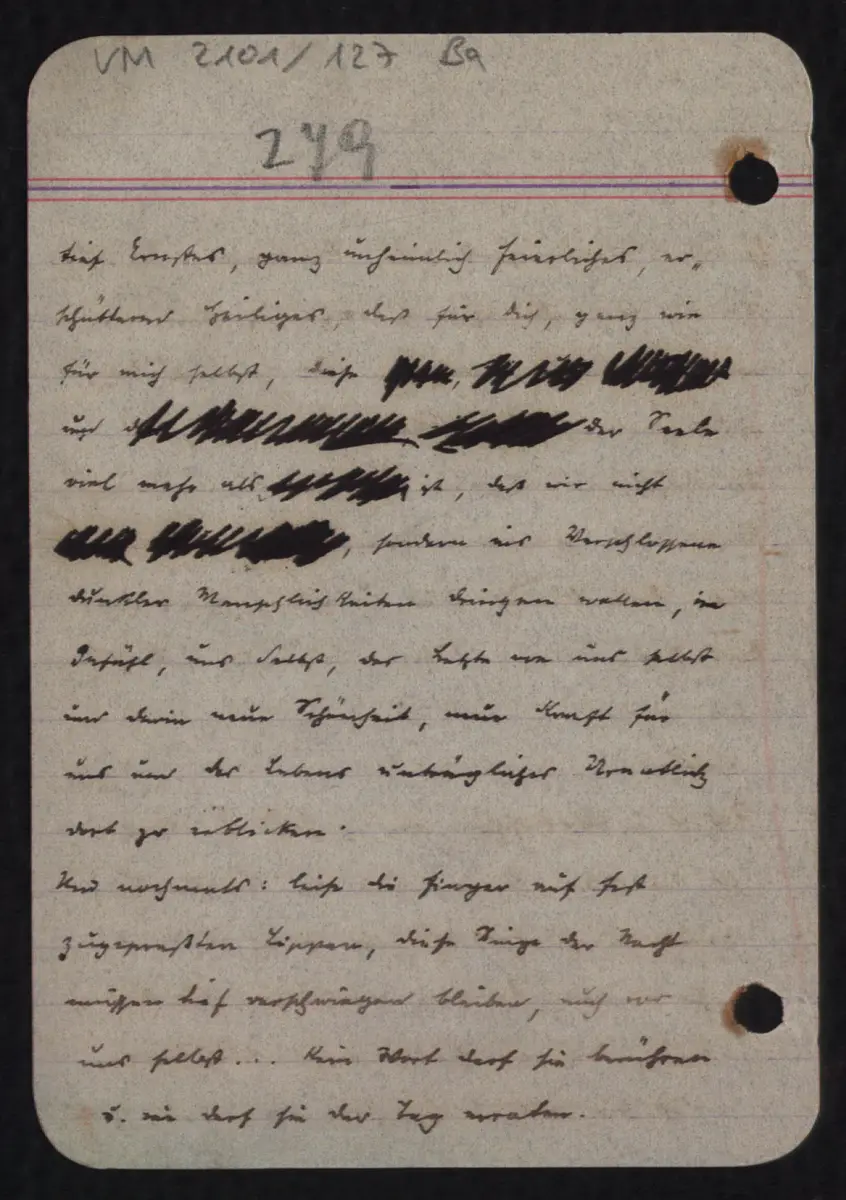 VM 2101/127 Ba
279
tief Ernstes, ganz unheimlich feierliches, er-
schütternd Heiliges, daß für dich, ganz wie
für mich selbst, diese
und der Seele
viel mehr als ist, daß wir nicht
, sondern ins Verschlossene
dunkler Menschlichkeiten dringen wollen, im
Gefühl, uns selbst, das Letzte von uns selbst
und darin neue Schönheit, neue Kraft für
uns und des Lebens untrügliches Urantlitz
dort zu erblicken.
Und nochmals: leise die Finger auf fest
zugepreßten Lippen, diese Dinge der Nacht
müssen tief verschwiegen bleiben, auch vor
uns selbst... Kein Wort darf sie berühren
u. nie darf sie der Tag erraten.